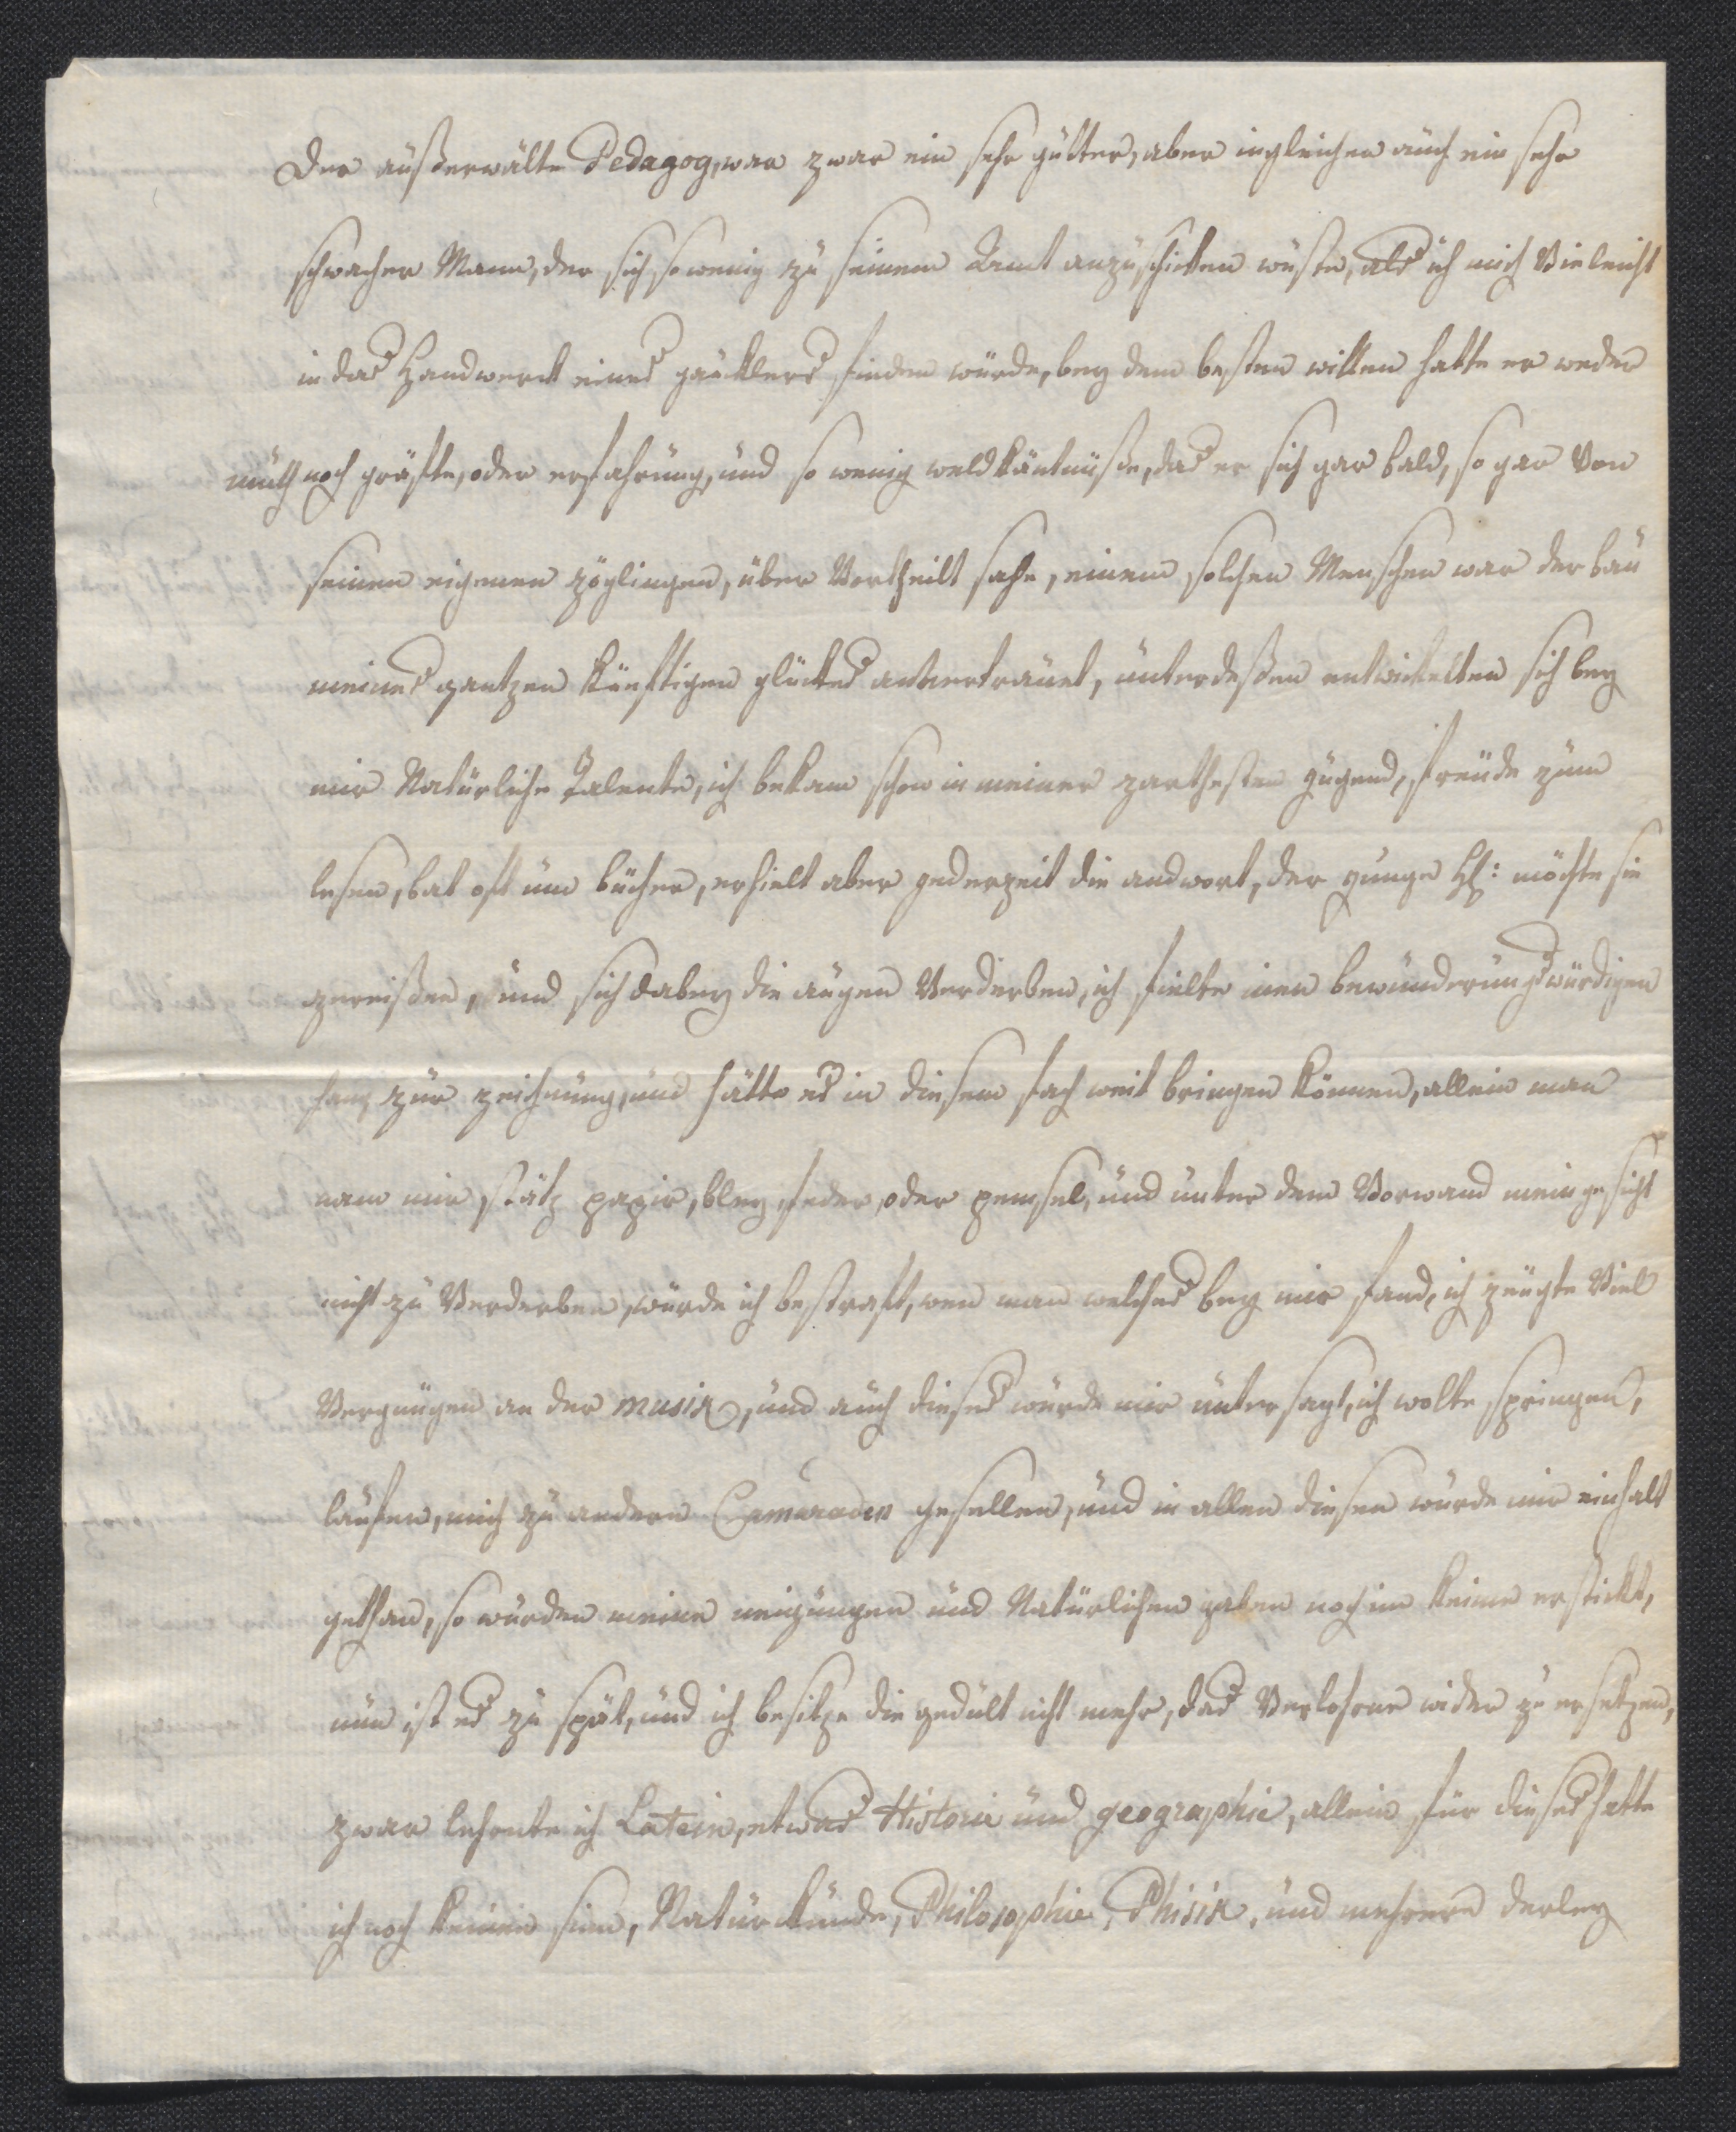 Der außerwälte Pedagog, war zwar ein sehr gutter, aber ingleichen auch ein sehr
schwacher Mann, der sich so wenig zu seinem Amt anzuschicken wuste, als ich mich Vieleicht
in das Handwerck eines gaucklers finden würde, bey dem besten willen hatte er weder
muth noch gräfte, oder erfahrung, und so wenig weldkäntnüße, das er sich gar bald, so gar Von
seinen eigenen zöglingen, über Vortheilt sahe, einem solchen Menschen war der bau
meines gantzen künftigen glückes anvertrauet, unterdeßen entwickelten sich bey
mir Natürliche Talente, ich bekam schon in meiner zarthesten gugend, freude zum
lesen, bat oft um bücher, erhielt aber gederzeit die andwort, der gunge H: möchte sie
zereißen, und sich dabey die augen Verderben, ich fielte inen bewunderungswürdigen
hang zur zeichnung, und hätte es in diesem fach weit bringen können, allein man
nam mir stätz papir, bley, feder, oder pemsel, und unter dem Vorwand mein gesicht
nicht zu Verderben, wurde ich bestraft, wen man welches bey mir fand, ich zeugte Viel
Vergnügen an der musik, und auch dieses wurde mir untersagt, ich wolte springen,
laufen, mich zu andern Cameraden gesellen, und in allen diesen wurde mir einhalt
gethan, so wurden meine neigungen und Natürlichen gaben noch im keime erstickt,
nun ist es zu spät, und ich besitze die gedult nicht mehr, das Verlohrne wider zu ersetzen,
zwar lehrnte ich Latein, etwas Historie und geographie, allein für dieses hatte
ich noch keinen sinn, Naturkunde, Philosophie, Phisik, und mehrere derley